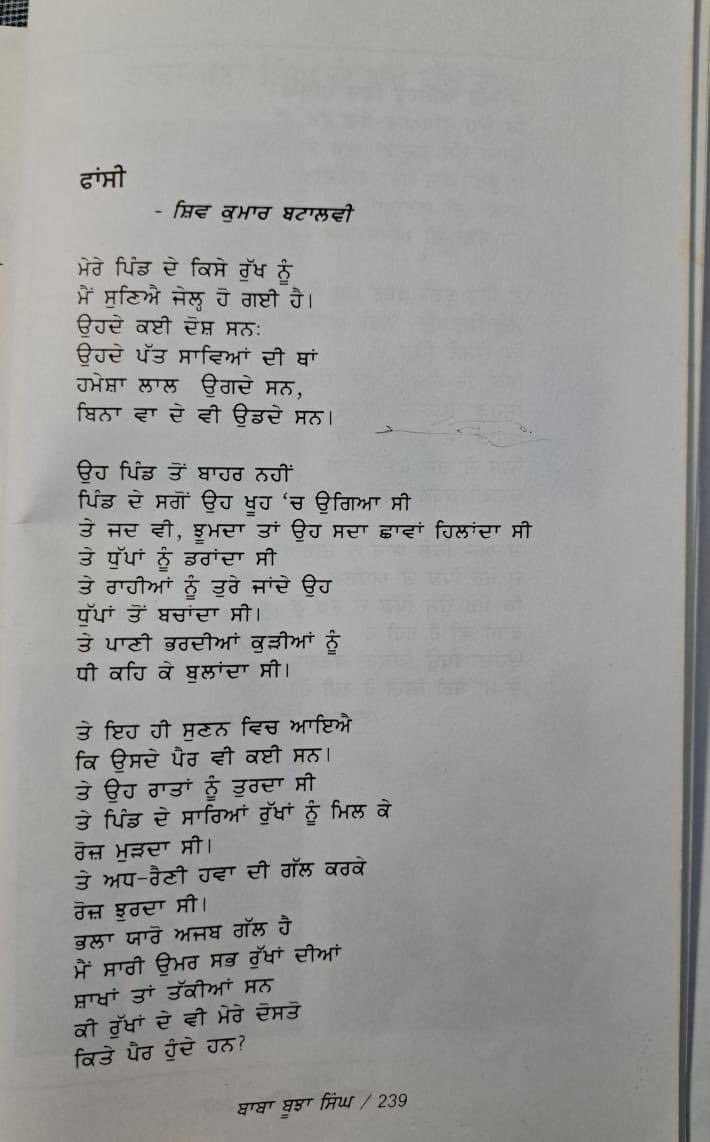 ਫਾਂਸੀ
- ਸ਼ਿਵ ਕੁਮਾਰ ਬਟਾਲਵੀ
ਮੇਰੇ ਪਿੰਡ ਦੇ ਕਿਸੇ ਰੁੱਖ ਨੂੰ
ਮੈਂ ਸੁਣਿਐ ਜੇਲ੍ਹ ਹੋ ਗਈ ਹੈ।
ਉਹਦੇ ਕਈ ਦੋਸ਼ ਸਨ:
ਉਹਦੇ ਪੱਤ ਸਾਵਿਆਂ ਦੀ ਥਾਂ
ਹਮੇਸ਼ਾ ਲਾਲ ਉਗਦੇ ਸਨ,
ਬਿਨਾ ਵਾ ਦੇ ਵੀ ਉਡਦੇ ਸਨ।
ਉਹ ਪਿੰਡ ਤੋਂ ਬਾਹਰ ਨਹੀਂ
ਪਿੰਡ ਦੇ ਸਗੋਂ ਉਹ ਖੂਹ ‘ਚ ਉਗਿਆ ਸੀ
ਤੇ ਜਦ ਵੀ, ਝੂਮਦਾ ਤਾਂ ਉਹ ਸਦਾ ਛਾਵਾਂ ਹਿਲਾਂਦਾ ਸੀ
ਤੇ ਧੁੱਪਾਂ ਨੂੰ ਡਰਾਂਦਾ ਸੀ
ਤੇ ਰਾਹੀਆਂ ਨੂੰ ਤੁਰੇ ਜਾਂਦੇ ਉਹ
ਧੁੱਪਾਂ ਤੋਂ ਬਚਾਂਦਾ ਸੀ।
ਤੇ ਪਾਣੀ ਭਰਦੀਆਂ ਕੁੜੀਆਂ ਨੂੰ
ਧੀ ਕਹਿ ਕੇ ਬੁਲਾਂਦਾ ਸੀ।
ਤੇ ਇਹ ਹੀ ਸੁਣਨ ਵਿਚ ਆਇਐ
ਕਿ ਉਸਦੇ ਪੈਰ ਵੀ ਕਈ ਸਨ।
ਤੇ ਉਹ ਰਾਤਾਂ ਨੂੰ ਤੁਰਦਾ ਸੀ
ਤੇ ਪਿੰਡ ਦੇ ਸਾਰਿਆਂ ਰੁੱਖਾਂ ਨੂੰ ਮਿਲ ਕੇ
ਰੋਜ਼ ਮੁੜਦਾ ਸੀ।
ਤੇ ਅਧ-ਰੈਣੀ ਹਵਾ ਦੀ ਗੱਲ ਕਰਕੇ
ਰੋਜ਼ ਝੁਰਦਾ ਸੀ।
ਭਲਾ ਯਾਰੋ ਅਜਬ ਗੱਲ ਹੈ
ਮੈਂ ਸਾਰੀ ਉਮਰ ਸਭ ਰੁੱਖਾਂ ਦੀਆਂ
ਸ਼ਾਖਾਂ ਤਾਂ ਤੱਕੀਆਂ ਸਨ
ਕੀ ਰੁੱਖਾਂ ਦੇ ਵੀ ਮੇਰੇ ਦੋਸਤੋ
ਕਿਤੇ ਪੈਰ ਹੁੰਦੇ ਹਨ?
ਬਾਬਾ ਬੂਝਾ ਸਿੰਘ / 239